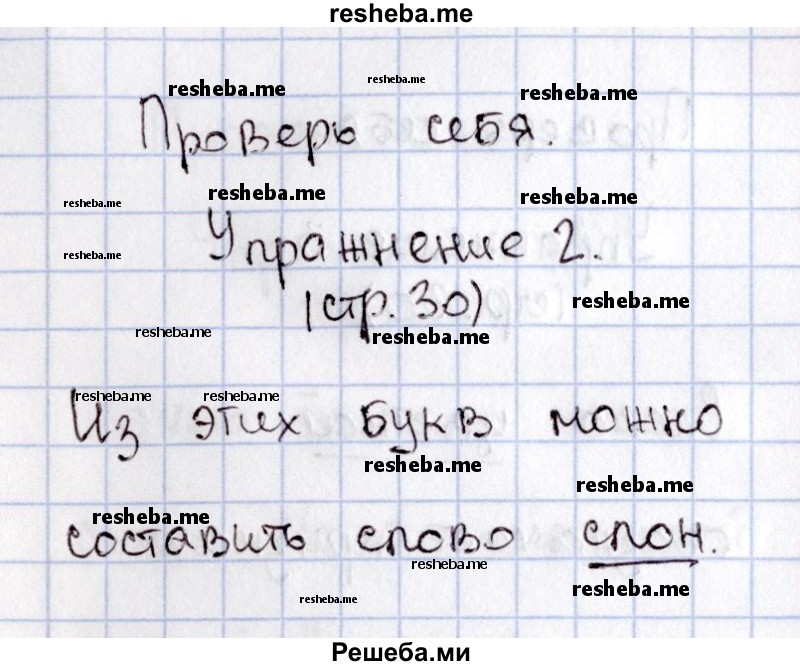 resheba.me
resheba.me
resheba.me
resheba.me
Проверь себя.
resheba.me
resheba.me
resheba.me
Упражнение 2.
resheba.me
(стр. 30)
resheba.me
resheba.me
resheba.me
resheba.me
resheba.me
Из этих букв можно
resheba.me
resheba.me
resheba.me
составить слово слон.
resheba.me
resheba.me
resheba.me
Решеба.ми